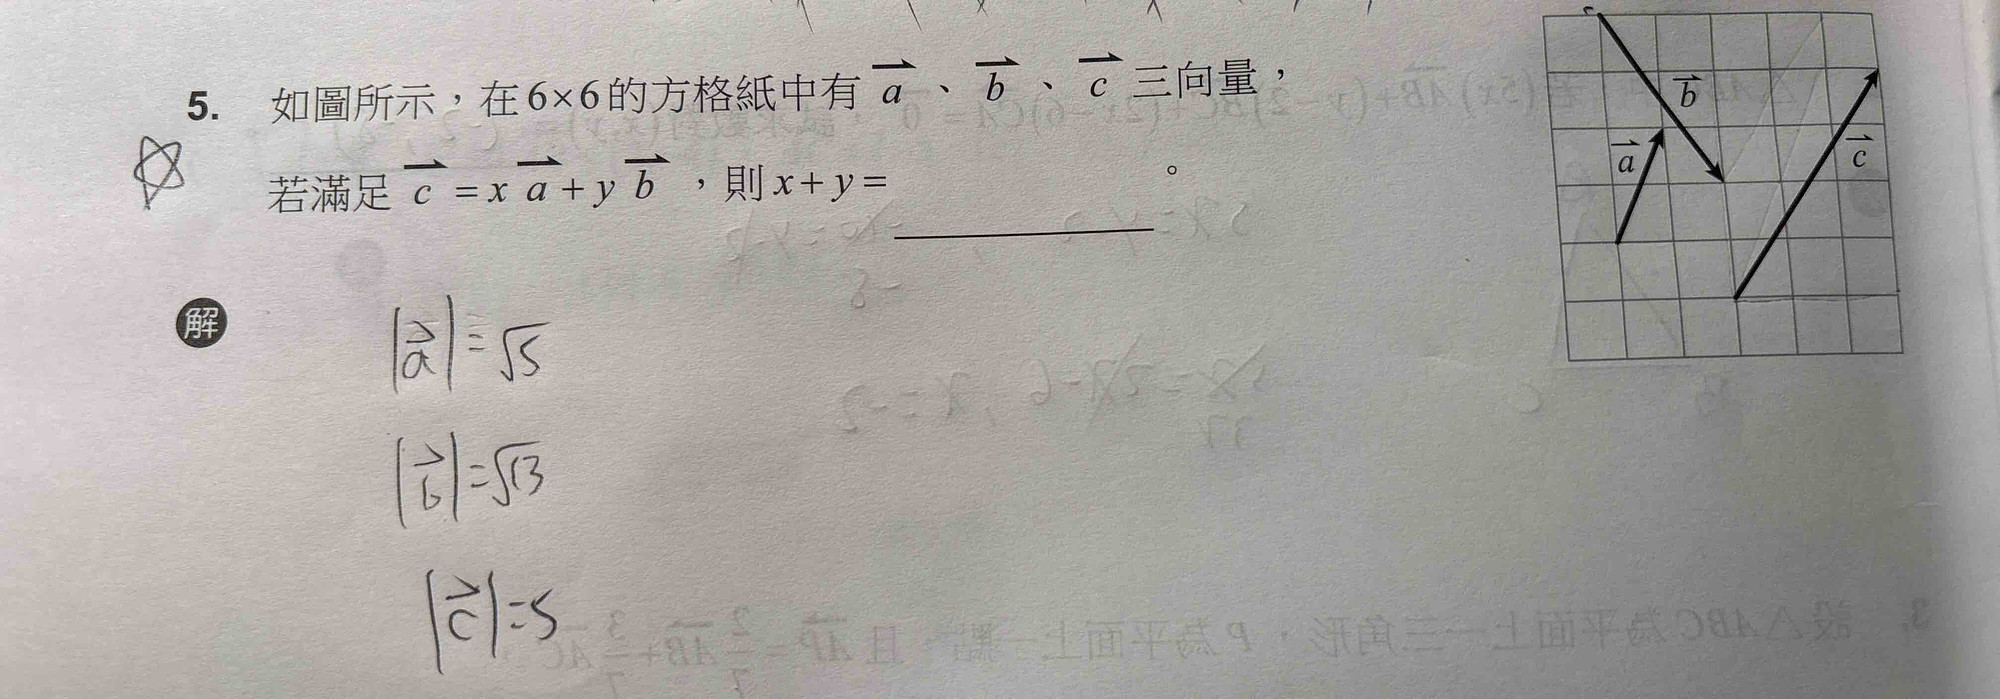 5. 如圖所示，在6×6的方格紙中有 $\vec{a}$、$\vec{b}$、$\vec{c}$ 三向量，
若滿足 $\vec{c}$ = x $\vec{a}$ + y $\vec{b}$，則 x + y = ＿＿＿＿＿＿。
$\vec{b}$
$\vec{a}$
$\vec{c}$
解
$|\vec{a}| = \sqrt{5}$
$|\vec{b}| = \sqrt{13}$
$|\vec{c}| = 5$